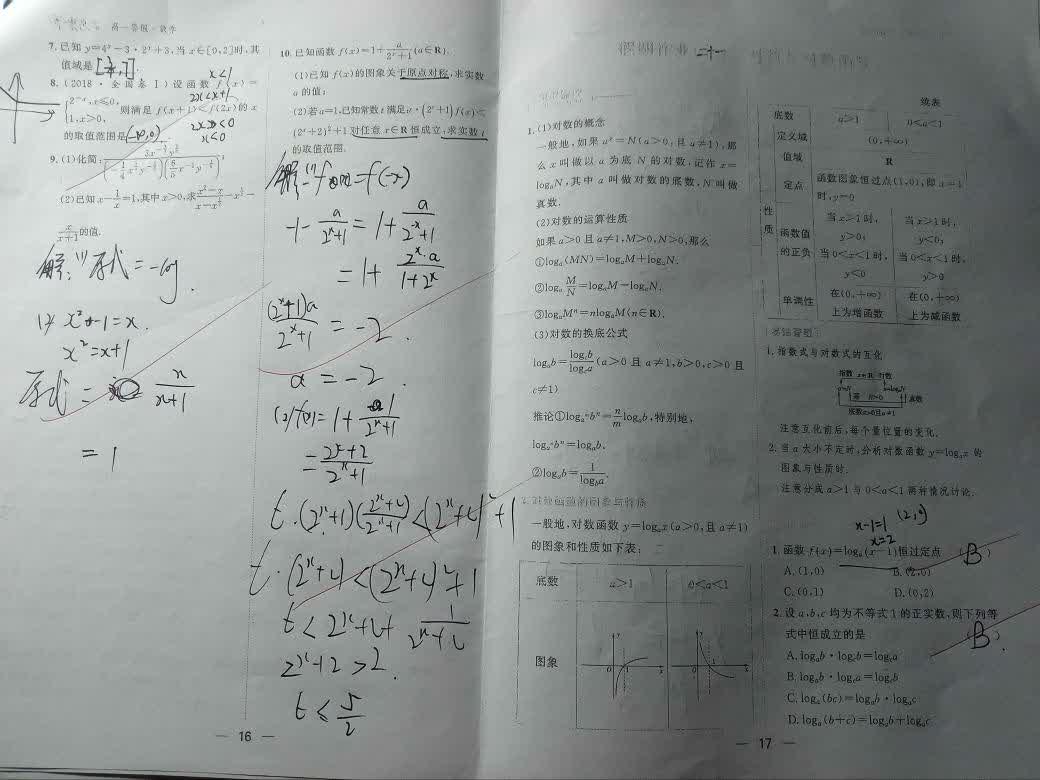 高一年级·数学
7. 已知 y=4ˣ-3·2ˣ+3,当 x∈[0,2]时,其
值域是[3/4,7].
8. (2018·全国卷Ⅰ)设函数 f(x)=
x<1
{2⁻ˣ,x≤0,
1,x>0, 则满足 f(x+1)<f(2x)的 x
2x<x+1
的取值范围是(-∞,0).
2x<0
x<0
9. (1)化简:
(2)已知 x-1/x=1,其中 x>0,求
x/(x+1)的值.
解:(1)原式=
(2) x²-1=x.
x²=x+1
原式=
x/(x+1)
=1
10. 已知函数 f(x)=1+a/(2ˣ+1)(a∈R).
(1)已知 f(x)的图象关于原点对称,求实数
a 的值;
(2)若 a=1,已知常数 t 满足:t·(2ˣ+1)f(x)<
(2ˣ+2)²+1 对任意 x∈R 恒成立,求实数 t
的取值范围.
解:(1)
=f(-x)
-1-a/(2ˣ+1)=1+a/(2⁻ˣ+1)
=1+2ˣ·a/(1+2ˣ)
(2ˣ+1)a/(2ˣ+1)=-2.
a=-2.
(2)f(x)=1+1/(2ˣ+1)
=(2ˣ+2)/(2ˣ+1)
t·(2ˣ+1)((2ˣ+2)/(2ˣ+1))<(2ˣ+2)²+1
t·(2ˣ+2)<(2ˣ+2)²+1
t<2ˣ+2+1/(2ˣ+2)
2ˣ+2>2.
t≤5/2
— 16 —
假期作业
1. (1)对数的概念
一般地,如果 aˣ=N(a>0,且 a≠1),那
么 x 叫做以 a 为底 N 的对数,记作 x=
logₐN,其中 a 叫做对数的底数,N 叫做
真数.
(2)对数的运算性质
如果 a>0 且 a≠1,M>0,N>0,那么
①logₐ(MN)=logₐM+logₐN.
②logₐ M/N=logₐM-logₐN.
③logₐMⁿ=nlogₐM(n∈R).
(3)对数的换底公式
logₐb=log_c b/log_c a(a>0 且 a≠1,b>0,c>0 且
c≠1)
推论①log_{aᵐ}bⁿ=n/m logₐb,特别地,
log_{aⁿ}bⁿ=logₐb.
②logₐb=1/log_b a.
2.对数函数的图象与性质
一般地,对数函数 y=logₐx(a>0,且 a≠1)
的图象和性质如下表:
底数 a>1 0<a<1
图象
续表
底数 a>1 0<a<1
定义域 (0,+∞)
值域 R
定点 函数图象恒过点(1,0),即 x=1
时,y=0
性质
函数值的正负
当 x>1 时, 当 x>1 时,
y>0; y<0;
当 0<x<1 时, 当 0<x<1 时,
y<0 y>0
单调性 在(0,+∞) 在(0,+∞)
上为增函数 上为减函数
1.指数式与对数式的互化
指数
真数
底数a>0且a≠1
注意互化前后,每个量位置的变化.
2. 当 a 大小不定时,分析对数函数 y=logₐx 的
图象与性质时.
注意分成 a>1 与 0<a<1 两种情况讨论.
x-1=1 (2,0)
x=2
1. 函数 f(x)=logₐ(x-1)恒过定点 (B)
A. (1,0) B. (2,0)
C. (0,1) D. (0,2)
2. 设 a,b,c 均为不等式 1 的正实数,则下列等
式中恒成立的是 (B)
A. logₐb·log_c b=log_c a
B. logₐb·log_c a=log_c b
C. logₐ(bc)=logₐb·logₐc
D. logₐ(b+c)=logₐb+logₐc
— 17 —